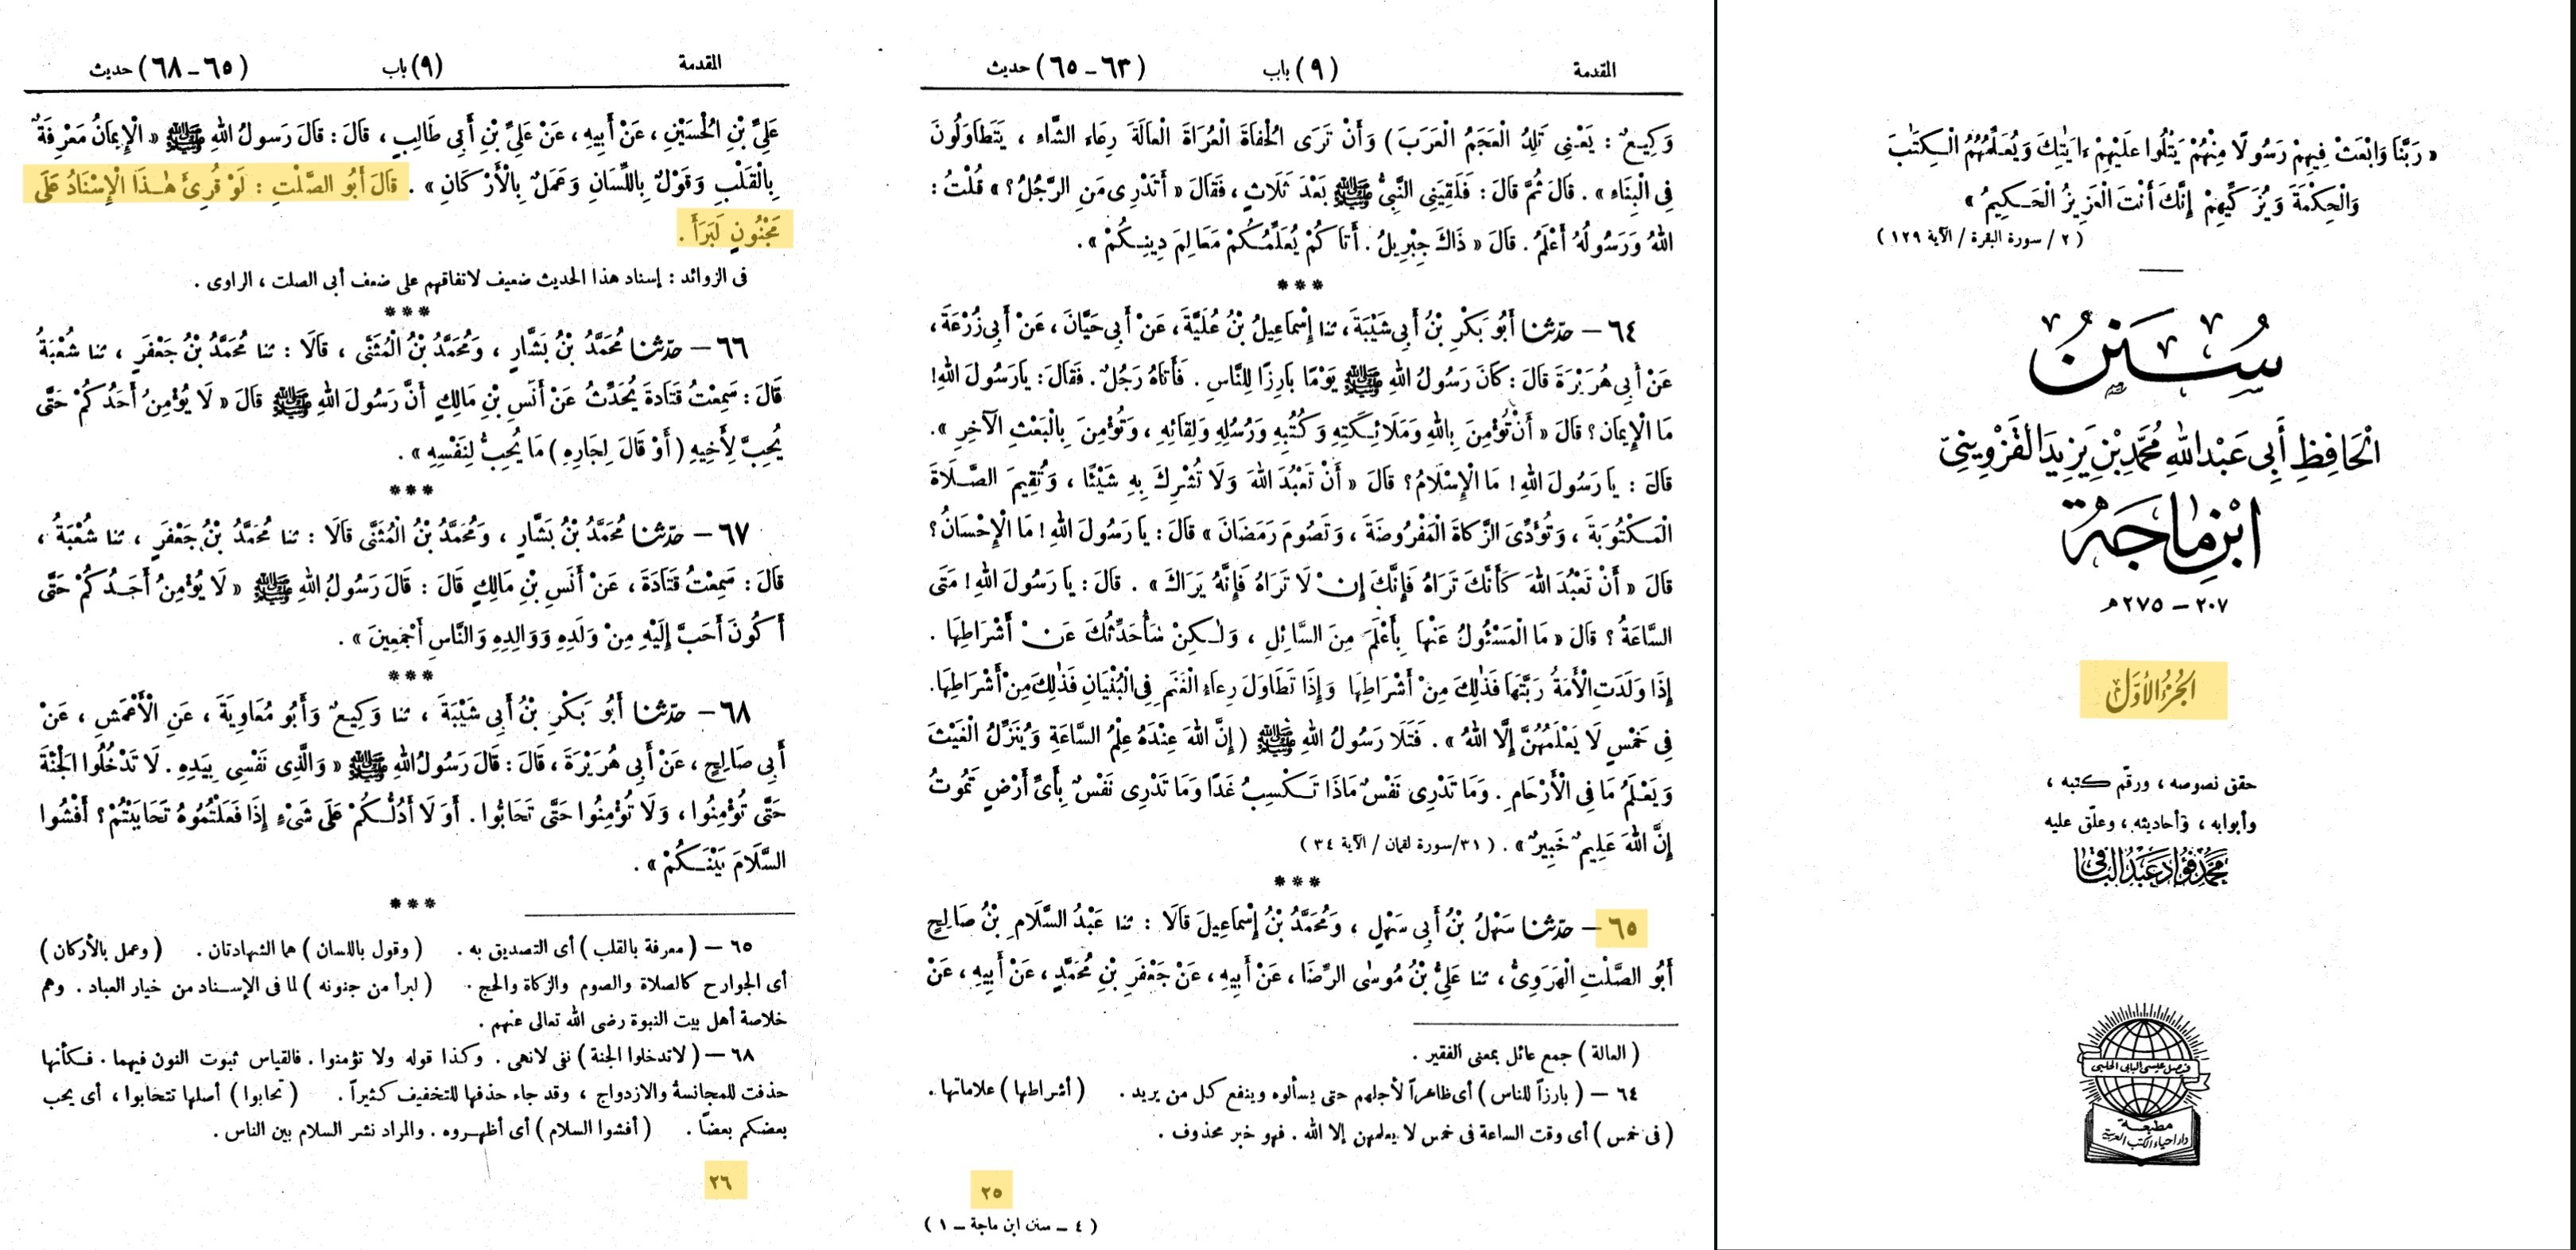 « رَبَّنَا وَابْعَثْ فِيهِمْ رَسُولًا مِنْهُمْ يَتْلُوا عَلَيْهِمْ ءَايَٰتِكَ وَيُعَلِّمُهُمُ الْكِتَٰبَ
وَالْحِكْمَةَ وَيُزَكِّيهِمْ إِنَّكَ أَنْتَ الْعَزِيزُ الْحَكِيمُ »
( ٢ / سورة البقرة / الآية ١٢٩ )
سُنَنُ
الْحَافِظِ أَبِي عَبْدِ اللهِ مُحَمَّدِ بْنِ يَزِيدَ الْقَزْوِينِيِّ
ابْنِ مَاجَهْ
٢٠٧ – ٢٧٥ هـ
الجُزْءُ الأَوَّلُ
حقق نصوصه ، ورقّم كتبه ،
وأبوابه ، وأحاديثه ، وعلّق عليه
مُحَمَّد فُؤَاد عَبْد الْبَاقِي
فيصل عيسى البابى الحلبى
مطبعة
دار احياء الكتب العربية
المقدمة (٩) باب (٦٣ – ٦٥) حديث
وَكِيعٌ : يَعْنِى تَلِدُ الْعَجَمُ الْعَرَبَ ) وَأَنْ تَرَى الْحُفَاةَ الْعُرَاةَ الْعَالَةَ رِعَاءَ الشَّاءِ ، يَتَطَاوَلُونَ
فِى الْبِنَاءِ » . قَالَ ثُمَّ قَالَ : فَلَقِيَنِى النَّبِىُّ ﷺ بَعْدَ ثَلَاثٍ ، فَقَالَ « أَتَدْرِى مَنِ الرَّجُلُ ؟ » قُلْتُ :
اللهُ وَرَسُولُهُ أَعْلَمُ . قَالَ « ذَاكَ جِبْرِيلُ . أَتَاكُمْ يُعَلِّمُكُمْ مَعَالِمَ دِينِكُمْ » .
***
٦٤ – حدّثنا أَبُو بَكْرِ بْنُ أَبِى شَيْبَةَ ، ثنا إِسْمَاعِيلُ بْنُ عُلَيَّةَ ، عَنْ أَبِى حَيَّانَ ، عَنْ أَبِى زُرْعَةَ ،
عَنْ أَبِى هُرَيْرَةَ قَالَ : كَانَ رَسُولُ اللهِ ﷺ يَوْمًا بَارِزًا لِلنَّاسِ . فَأَتَاهُ رَجُلٌ . فَقَالَ : يَا رَسُولَ اللهِ !
مَا الْإِيمَانُ ؟ قَالَ « أَنْ تُؤْمِنَ بِاللهِ وَمَلَائِكَتِهِ وَكُتُبِهِ وَرُسُلِهِ وَلِقَائِهِ ، وَتُؤْمِنَ بِالْبَعْثِ الْآخِرِ » .
قَالَ : يَا رَسُولَ اللهِ ! مَا الْإِسْلَامُ ؟ قَالَ « أَنْ تَعْبُدَ اللهَ وَلَا تُشْرِكَ بِهِ شَيْئًا ، وَتُقِيمَ الصَّلَاةَ
الْمَكْتُوبَةَ ، وَتُؤَدِّىَ الزَّكَاةَ الْمَفْرُوضَةَ ، وَتَصُومَ رَمَضَانَ » قَالَ : يَا رَسُولَ اللهِ ! مَا الْإِحْسَانُ ؟
قَالَ « أَنْ تَعْبُدَ اللهَ كَأَنَّكَ تَرَاهُ فَإِنَّكَ إِنْ لَا تَرَاهُ فَإِنَّهُ يَرَاكَ » . قَالَ : يَا رَسُولَ اللهِ ! مَتَى
السَّاعَةُ ؟ قَالَ « مَا الْمَسْئُولُ عَنْهَا بِأَعْلَمَ مِنَ السَّائِلِ ، وَلَكِنْ سَأُحَدِّثُكَ عَنْ أَشْرَاطِهَا .
إِذَا وَلَدَتِ الْأَمَةُ رَبَّتَهَا فَذَلِكَ مِنْ أَشْرَاطِهَا وَإِذَا تَطَاوَلَ رِعَاءُ الْغَنَمِ فِى الْبُنْيَانِ فَذَلِكَ مِنْ أَشْرَاطِهَا .
فِى خَمْسٍ لَا يَعْلَمُهُنَّ إِلَّا اللهُ » . فَتَلَا رَسُولُ اللهِ ﷺ ( إِنَّ اللهَ عِنْدَهُ عِلْمُ السَّاعَةِ وَيُنَزِّلُ الْغَيْثَ
وَيَعْلَمُ مَا فِى الْأَرْحَامِ . وَمَا تَدْرِى نَفْسٌ مَاذَا تَكْسِبُ غَدًا وَمَا تَدْرِى نَفْسٌ بِأَىِّ أَرْضٍ تَمُوتُ
إِنَّ اللهَ عَلِيمٌ خَبِيرٌ » . ( ٣١/سورة لقمان / الآية ٣٤ )
***
٦٥ – حدّثنا سَهْلُ بْنُ أَبِى سَهْلٍ ، وَمُحَمَّدُ بْنُ إِسْمَاعِيلَ قَالَا : ثنا عَبْدُ السَّلَامِ بْنُ صَالِحٍ
أَبُو الصَّلْتِ الْهَرَوِىُّ ، ثنا عَلِىُّ بْنُ مُوسَى الرِّضَا ، عَنْ أَبِيهِ ، عَنْ جَعْفَرِ بْنِ مُحَمَّدٍ ، عَنْ أَبِيهِ ، عَنْ
( العالة ) جمع عائل بمعنى الفقير .
٦٤ – ( بارزاً للناس ) أى ظاهراً لأجلهم حتى يسألوه وينفع كل من يريد . ( أشراطها ) علاماتها .
( فى خمس ) أى وقت الساعة فى خمس لا يعلمهن إلا الله . فهو خبر محذوف .
٢٥
( ٤ – سنن ابن ماجة – ١ )
المقدمة (٩) باب (٦٥ – ٦٨) حديث
عَلِىِّ بْنِ الْحُسَيْنِ ، عَنْ أَبِيهِ ، عَنْ عَلِىِّ بْنِ أَبِى طَالِبٍ ، قَالَ : قَالَ رَسُولُ اللهِ ﷺ « الْإِيمَانُ مَعْرِفَةٌ
بِالْقَلْبِ وَقَوْلٌ بِاللِّسَانِ وَعَمَلٌ بِالْأَرْكَانِ » . قَالَ أَبُو الصَّلْتِ : لَوْ قُرِئَ هَٰذَا الْإِسْنَادُ عَلَى
مَجْنُونٍ لَبَرَأَ .
فى الزوائد : إسناد هذا الحديث ضعيف لاتفاقهم على ضعف أبى الصلت ، الراوى .
***
٦٦ – حدّثنا مُحَمَّدُ بْنُ بَشَّارٍ ، وَمُحَمَّدُ بْنُ الْمُثَنَّى ، قَالَا : ثنا مُحَمَّدُ بْنُ جَعْفَرٍ ، ثنا شُعْبَةُ
قَالَ : سَمِعْتُ قَتَادَةَ يُحَدِّثُ عَنْ أَنَسِ بْنِ مَالِكٍ أَنَّ رَسُولَ اللهِ ﷺ قَالَ « لَا يُؤْمِنُ أَحَدُكُمْ حَتَّى
يُحِبَّ لِأَخِيهِ ( أَوْ قَالَ لِجَارِهِ ) مَا يُحِبُّ لِنَفْسِهِ » .
***
٦٧ – حدّثنا مُحَمَّدُ بْنُ بَشَّارٍ ، وَمُحَمَّدُ بْنُ الْمُثَنَّى قَالَا : ثنا مُحَمَّدُ بْنُ جَعْفَرٍ ، ثنا شُعْبَةُ ،
قَالَ : سَمِعْتُ قَتَادَةَ ، عَنْ أَنَسِ بْنِ مَالِكٍ قَالَ : قَالَ رَسُولُ اللهِ ﷺ « لَا يُؤْمِنُ أَحَدُكُمْ حَتَّى
أَكُونَ أَحَبَّ إِلَيْهِ مِنْ وَلَدِهِ وَوَالِدِهِ وَالنَّاسِ أَجْمَعِينَ » .
***
٦٨ – حدّثنا أَبُو بَكْرِ بْنُ أَبِى شَيْبَةَ ، ثنا وَكِيعٌ وَأَبُو مُعَاوِيَةَ ، عَنِ الْأَعْمَشِ ، عَنْ
أَبِى صَالِحٍ ، عَنْ أَبِى هُرَيْرَةَ ، قَالَ : قَالَ رَسُولُ اللهِ ﷺ « وَالَّذِى نَفْسِى بِيَدِهِ . لَا تَدْخُلُوا الْجَنَّةَ
حَتَّى تُؤْمِنُوا ، وَلَا تُؤْمِنُوا حَتَّى تَحَابُّوا . أَوَ لَا أَدُلُّكُمْ عَلَى شَىْءٍ إِذَا فَعَلْتُمُوهُ تَحَابَبْتُمْ ؟ أَفْشُوا
السَّلَامَ بَيْنَكُمْ » .
***
٦٥ – ( معرفة بالقلب ) أى التصديق به . ( وقول باللسان ) هما الشهادتان . ( وعمل بالأركان )
أى الجوارح كالصلاة والصوم والزكاة والحج . ( لبرأ من جنونه ) لما فى الإسناد من خيار العباد . وهم
خلاصة أهل بيت النبوة رضى الله تعالى عنهم .
٦٨ – ( لاتدخلوا الجنة ) نفى لانهى . وكذا قوله ولا تؤمنوا . فالقياس ثبوت النون فيهما . فكأنها
حذفت للمجانسة والازدواج ، وقد جاء حذفها للتخفيف كثيراً . ( تحابوا ) أصلها تتحابوا ، أى يحب
بعضكم بعضاً . ( أفشوا السلام ) أى أظهروه . والمراد نشر السلام بين الناس .
٢٦